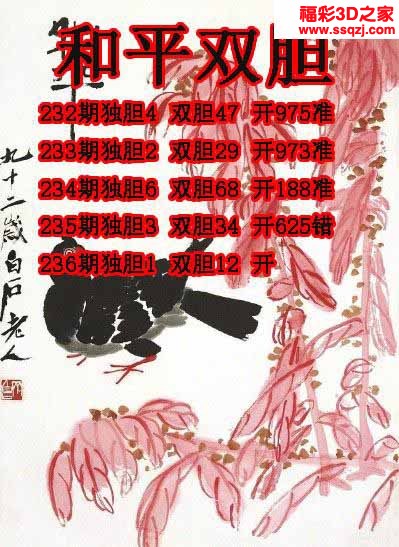 福彩3D之家
www.ssqzj.com
和平双胆
232期独胆4 双胆47 开975准
233期独胆2 双胆29 开973准
234期独胆6 双胆68 开188准
235期独胆3 双胆34 开625错
236期独胆1 双胆12 开
九十二岁白石老人